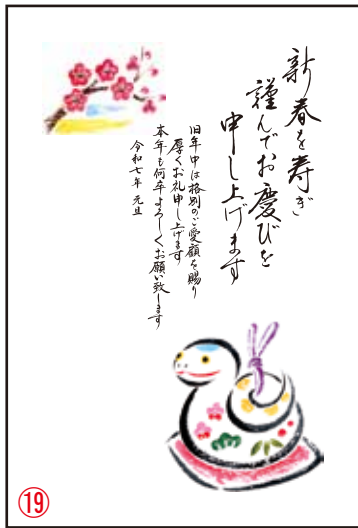 新春を寿ぎ
謹んでお慶びを
申し上げます
旧年中は格別のご愛顧を賜り
厚くお礼申し上げます
本年も何卒よろしくお願い致します
令和七年 元旦
⑲